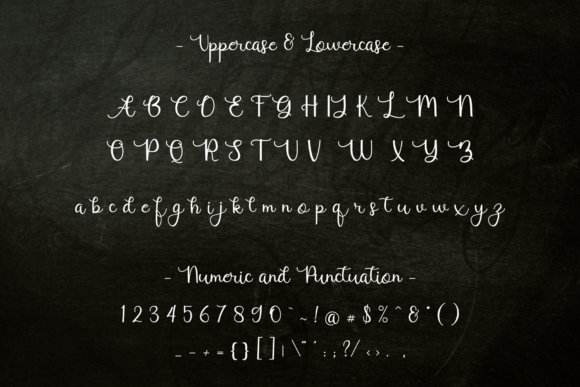 - Uppercase & Lowercase -
A B C D E F G H I J K L M N
O P Q R S T U V W X Y Z
a b c d e f g h i j k l m n o p q r s t u v w x y z
- Numeric and Punctuation -
1 2 3 4 5 6 7 8 9 0 ` ~ ! @ # $ % ^ & * ( )
_ - + = { } [ ] | \ " ' : ; ? / < > . ,